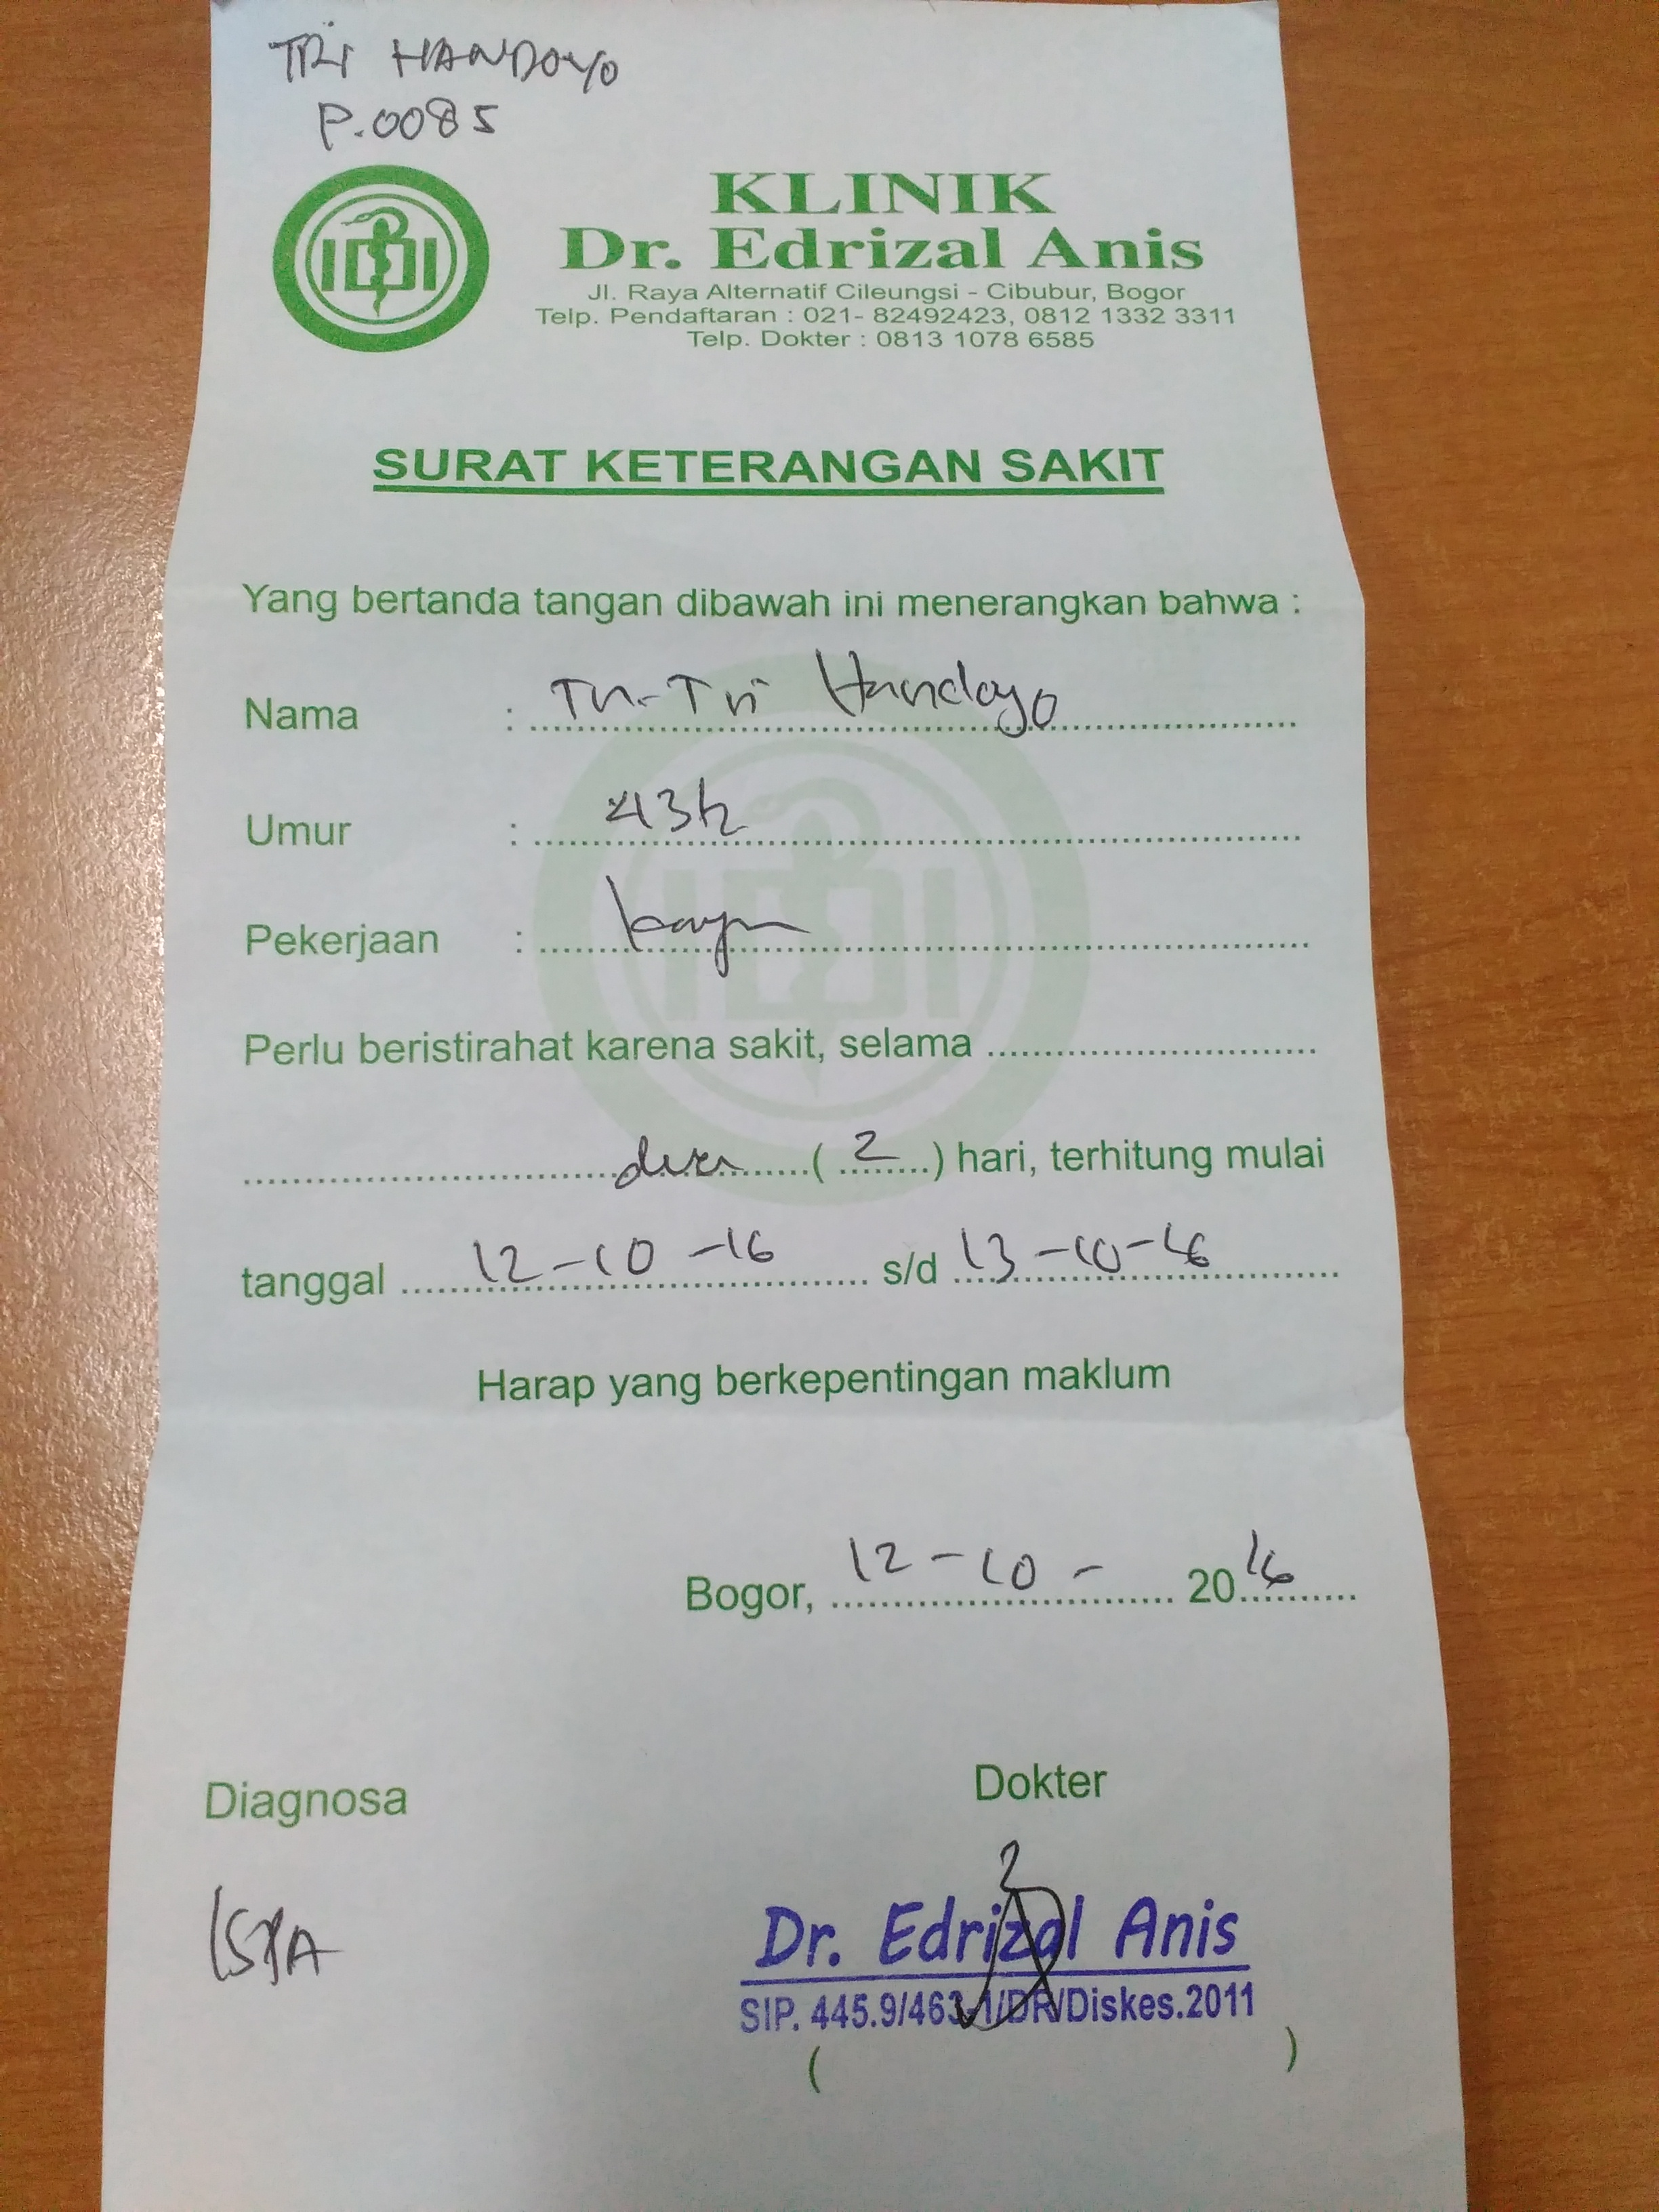 TRI HANDOYO
P.0085
IDI
KLINIK
Dr. Edrizal Anis
Jl. Raya Alternatif Cileungsi - Cibubur, Bogor
Telp. Pendaftaran : 021- 82492423, 0812 1332 3311
Telp. Dokter : 0813 1078 6585
SURAT KETERANGAN SAKIT
Yang bertanda tangan dibawah ini menerangkan bahwa :
Nama : Tn. Tri Handoyo
Umur : 43 th
Pekerjaan :
Perlu beristirahat karena sakit, selama
dua ( 2 ) hari, terhitung mulai
tanggal 12-10-16 s/d 13-10-16
Harap yang berkepentingan maklum
Bogor, 12-10- 2016
Diagnosa Dokter
ISPA
Dr. Edrizal Anis
SIP. 445.9/463.1/DR/Diskes.2011
( )